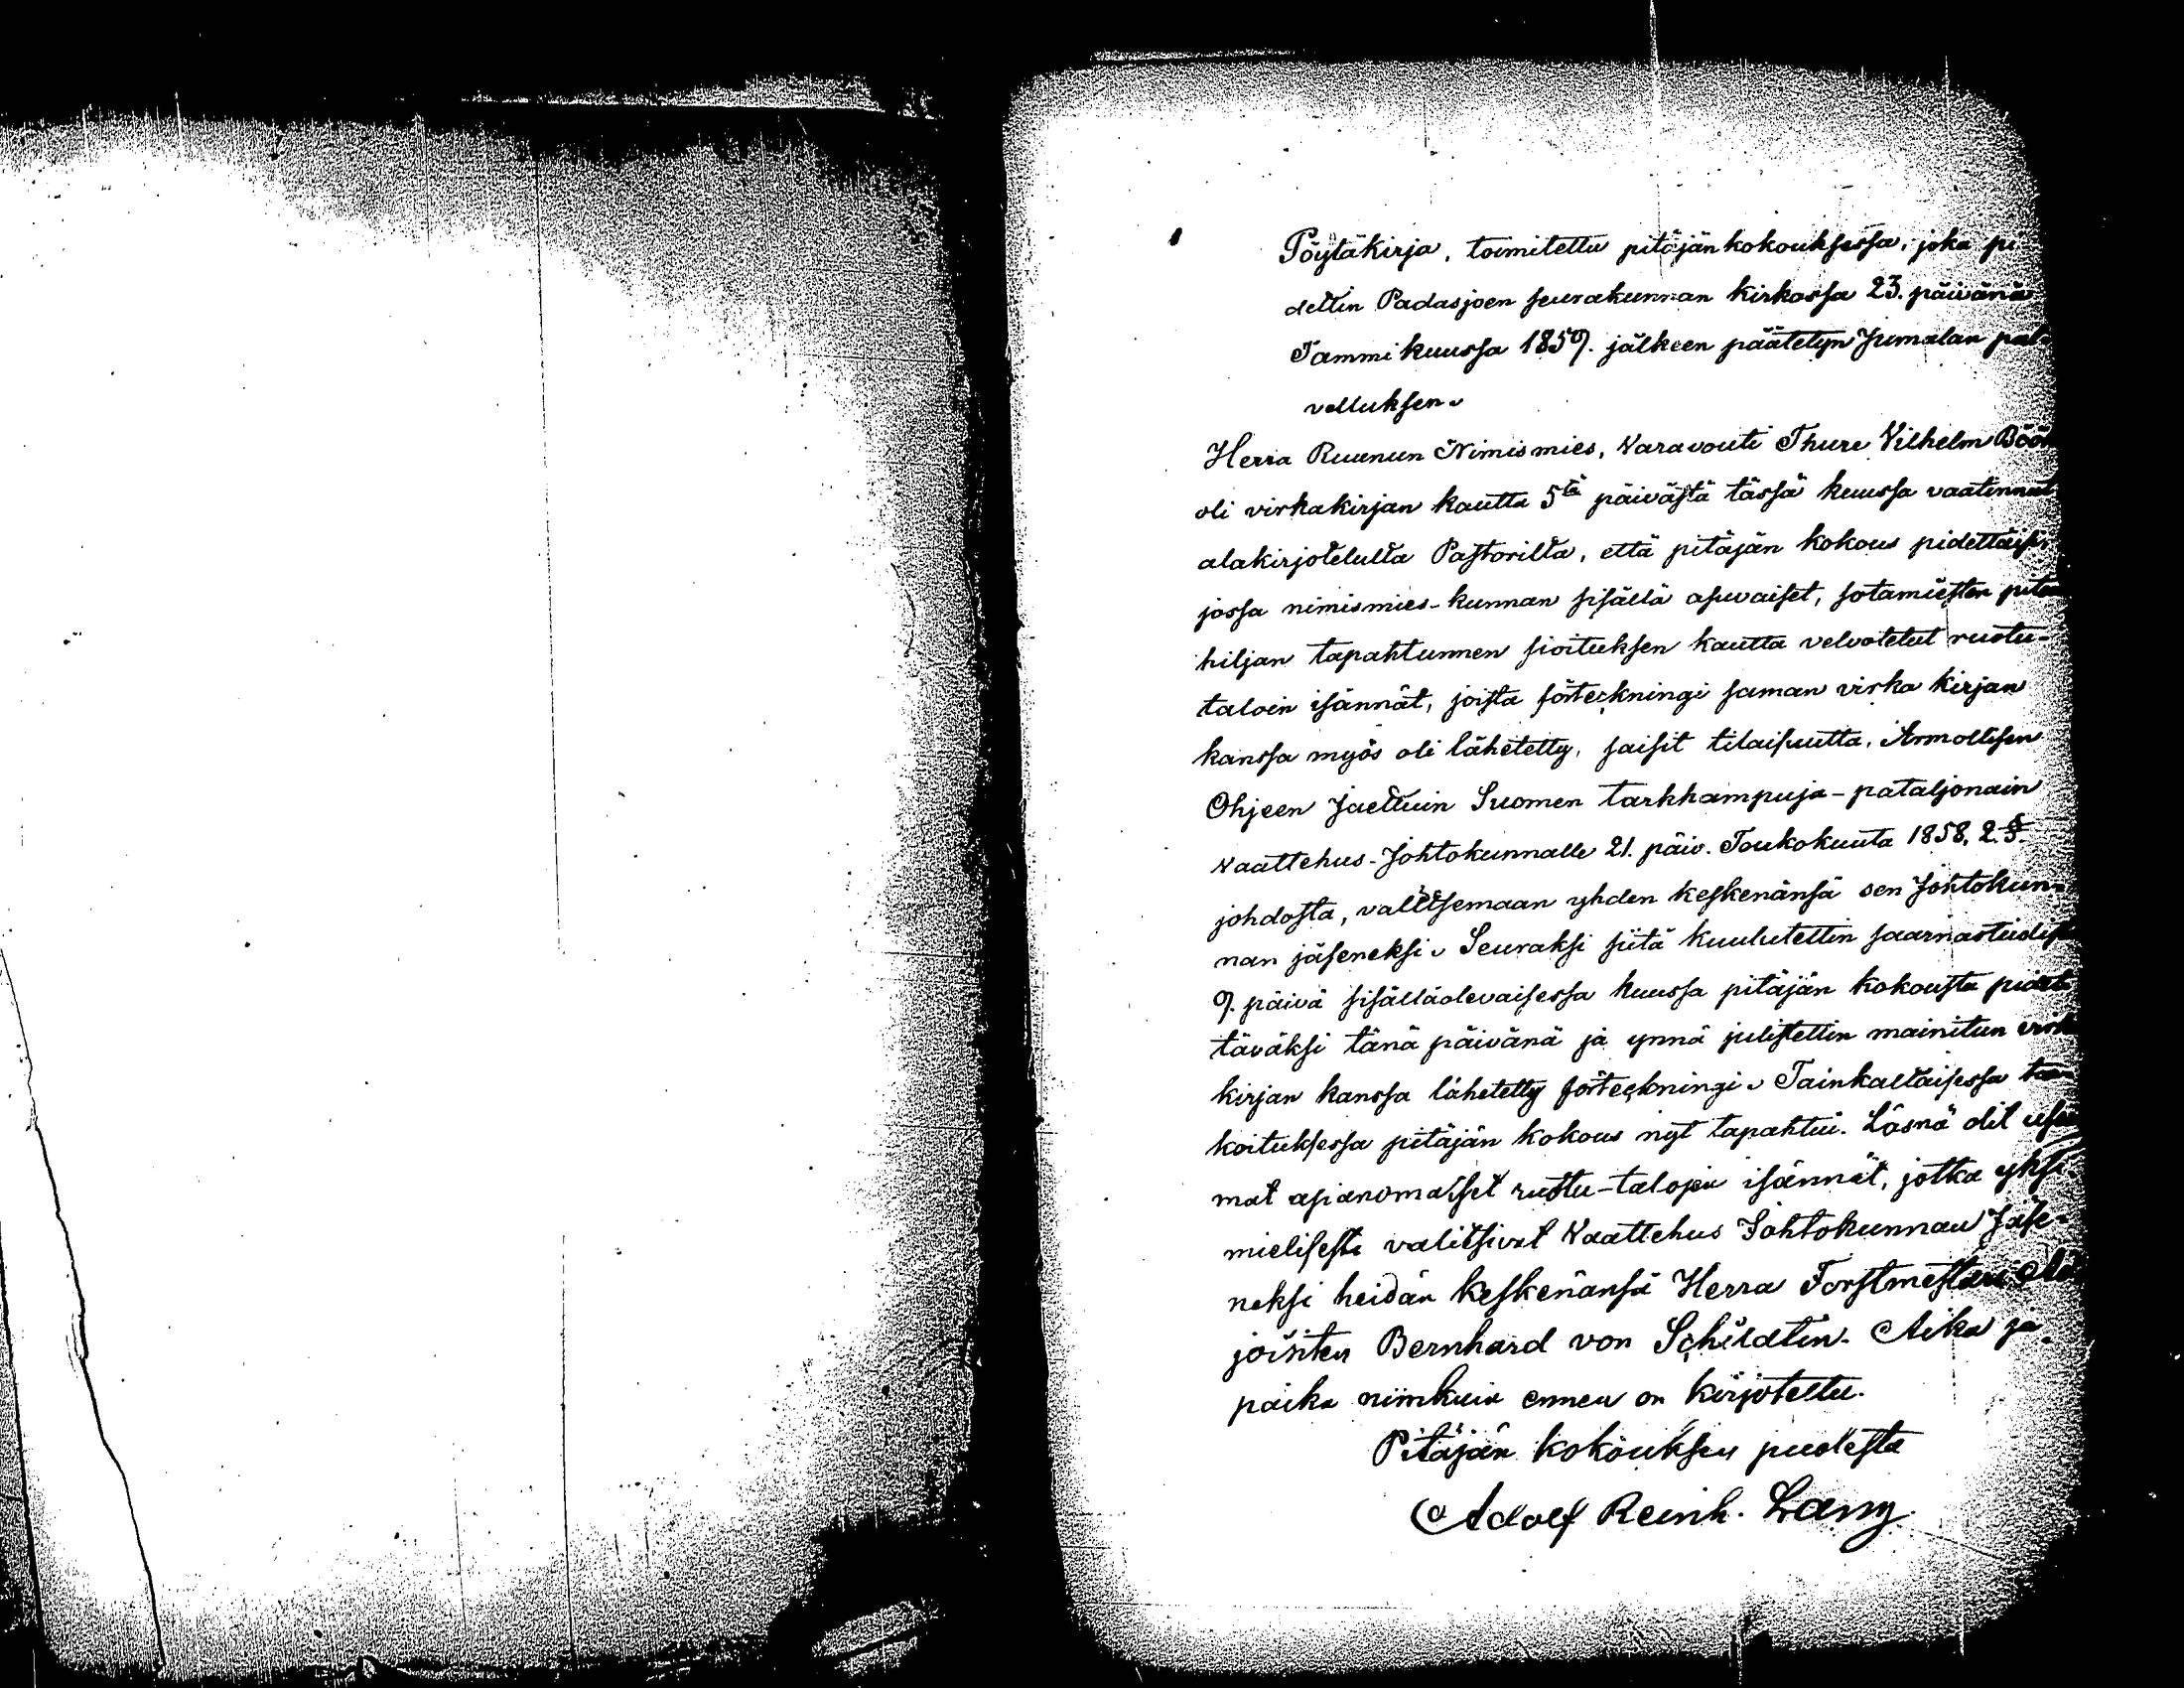 Pöytäkirja, toimitettu pitäjänkokouksessa, joka pi-
dettin Padasjoen seurakunnan kirkossa 23. päivänä
Tammikuussa 1859. jälkeen päätetyn Jumalan pal-
velluksen.
Herra Ruunun Nimismies, Varavouti Thure Vilhelm Böök
oli virkakirjan kautta 5tä päivästä tässä kuussa vaatinnut
alakirjotetulta Pastorilta, että pitäjän kokous pidettäisi,
jossa nimismies-kunnan sisällä asuvaiset, sotamiesten
hiljan tapahtunnen sioituksen kautta velvotetut ruotu-
taloin isännät, joista förteckningi saman virka kirjan
kanssa myös oli lähetetty, saisit tilaisuutta, Armollisen
Ohjeen Jaettuin Suomen tarkkampuja-pataljonain
Vaattehus-Johtokunnalle 21. päiv. Toukokuuta 1858, 2. §.
johdosta, valitsemaan yhden keskenänsä sen Johtokun-
nan jäseneksi. Seuraksi siitä kuulutettin saarnastuolista
9. päivä sisälläolevaisessa kuussa pitäjän kokousta pidet-
täväksi tänä päivänä ja ynnä julistettin mainitun virka
kirjan kanssa lähetetty förteckningi. Tainkaltaisessa tar-
koituksessa pitäjän kokous nyt tapahtui. Läsnä olit usia-
mat asianomaiset ruotu-talojen isännät, jotka yksi-
mielisesti valitsivat Vaattehus Johtokunnan Jäse-
neksi heidän keskenänsä Herra Forstmestari
Bernhard von Schildtin. Aika ja
paika niinkuin ennen on kirjotettu.
Pitäjän kokouksen puolesta
Adolf Reinh. Lang